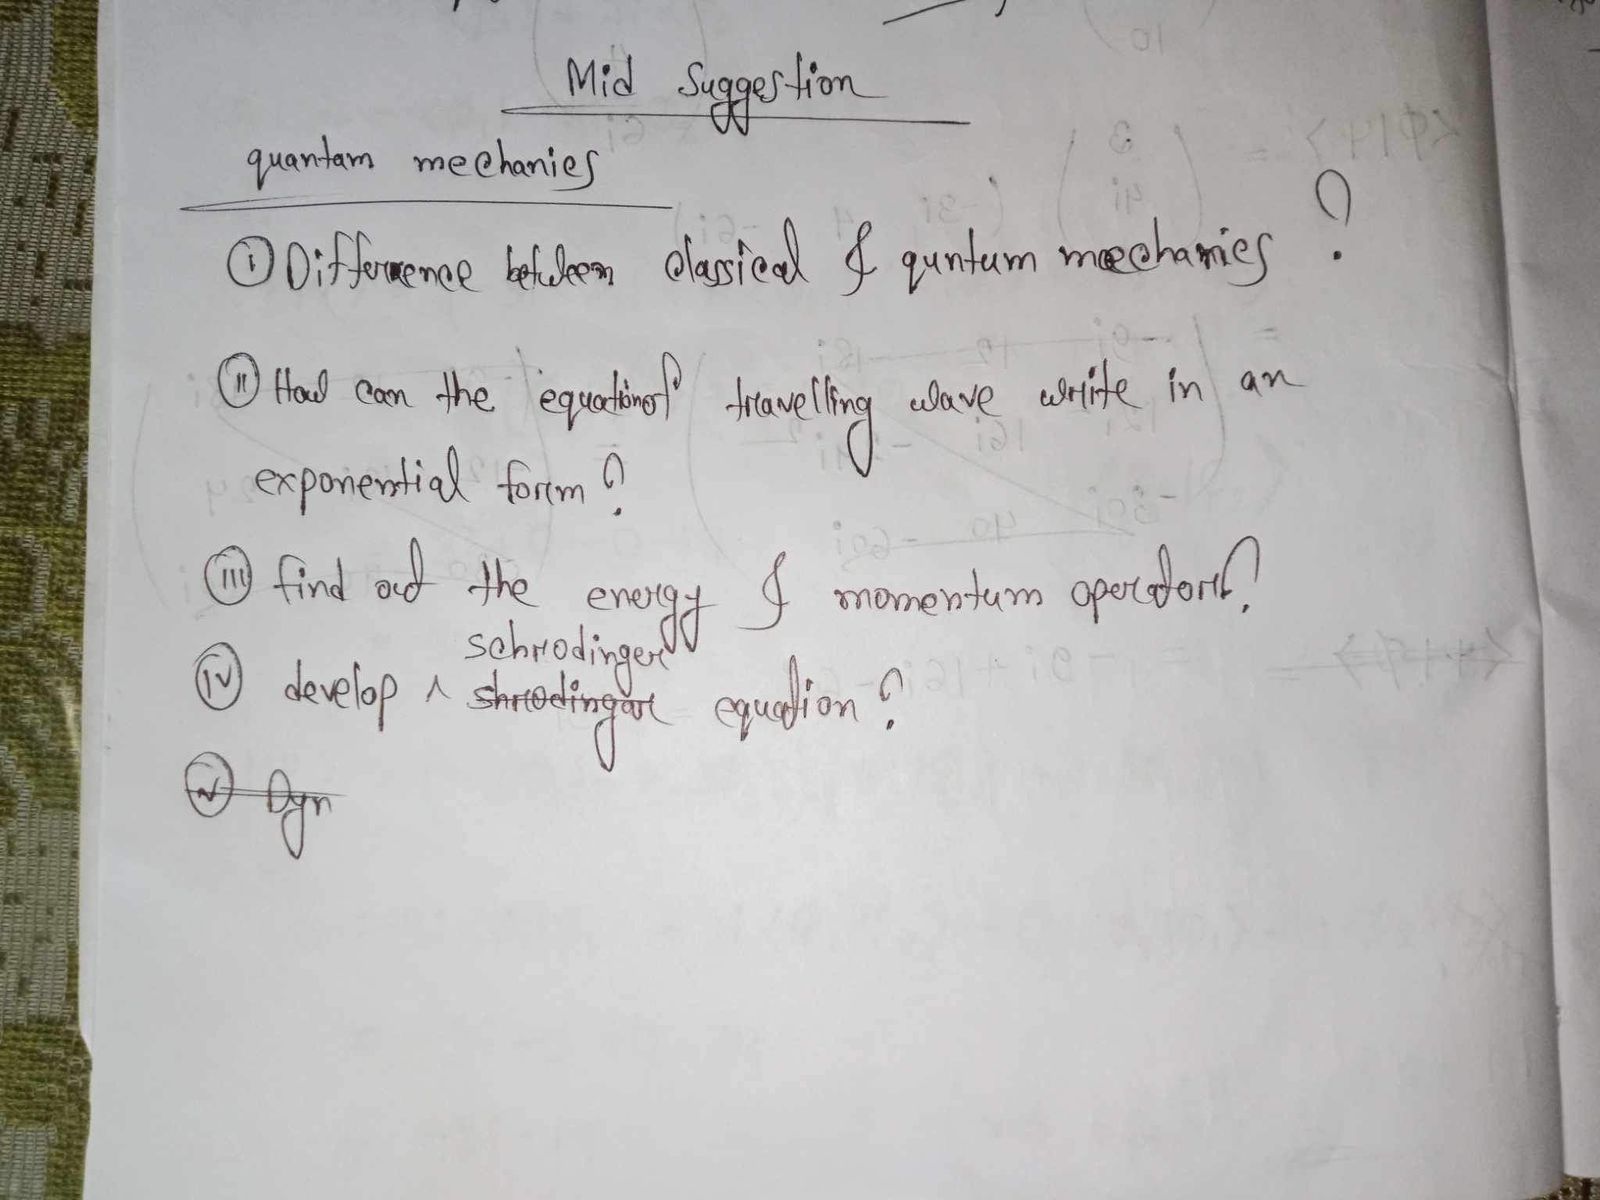 Mid Suggestion
quantam mechanics
(i) Difference between classical & quntum mechanics ?
(ii) How can the equation of travelling wave write in an
exponential form ?
(iii) find out the energy & momentum operator ?
schrodinger
(iv) develop ^ shrodingar equation ?
(v) Dyn